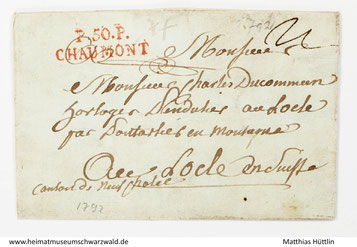 P.50.P.
CHAUMONT
1792
Monsieur
Monsieur Charles Ducommun
horloger Penduliste au Locle
par Pontarlier en montagne
au Locle en Suisse
canton de neufchatel
1792
www.heimatmuseumschwarzwald.de
Matthias Hüttlin